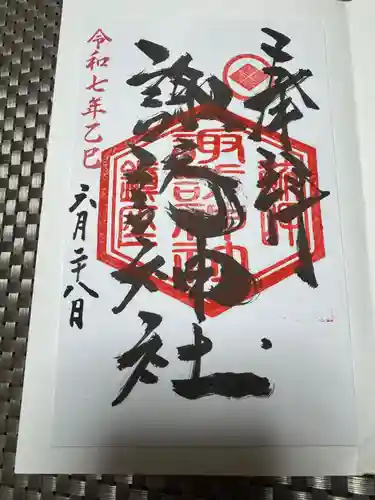 奉拝
諏訪神社
令和七年乙巳
六月二十八日